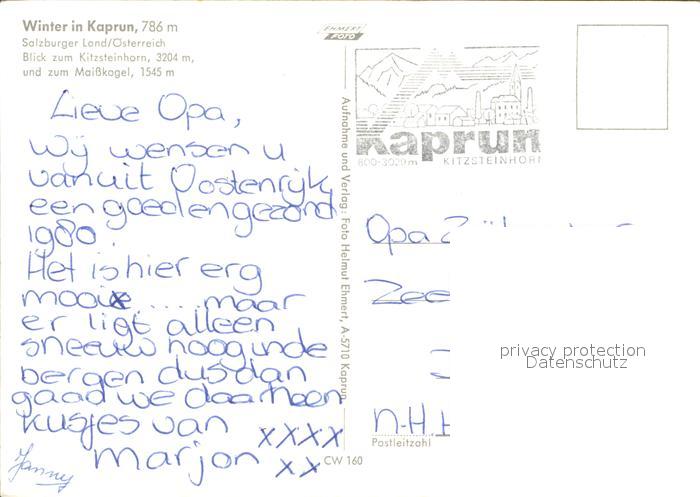 Winter in Kaprun, 786 m
Salzburger Land/Österreich
Blick zum Kitzsteinhorn, 3204 m,
und zum Maißkogel, 1545 m
Lieve Opa,
wij wensen u
vanuit Oostenrijk
een goed en gezond
1980.
Het is hier erg
mooi .... maar
er ligt alleen
sneeuw hoog in de
bergen dus dan
gaad we daar heen
kusjes van xxxx
Marjon xx
Janny
EHMERT
FOTO
Aufnahme und Verlag: Foto Helmut Ehmert, A-5710 Kaprun
CW 160
kaprun
800-3029m KITZSTEINHORN
Opa
Zee
N-H.
Postleitzahl
privacy protection
Datenschutz